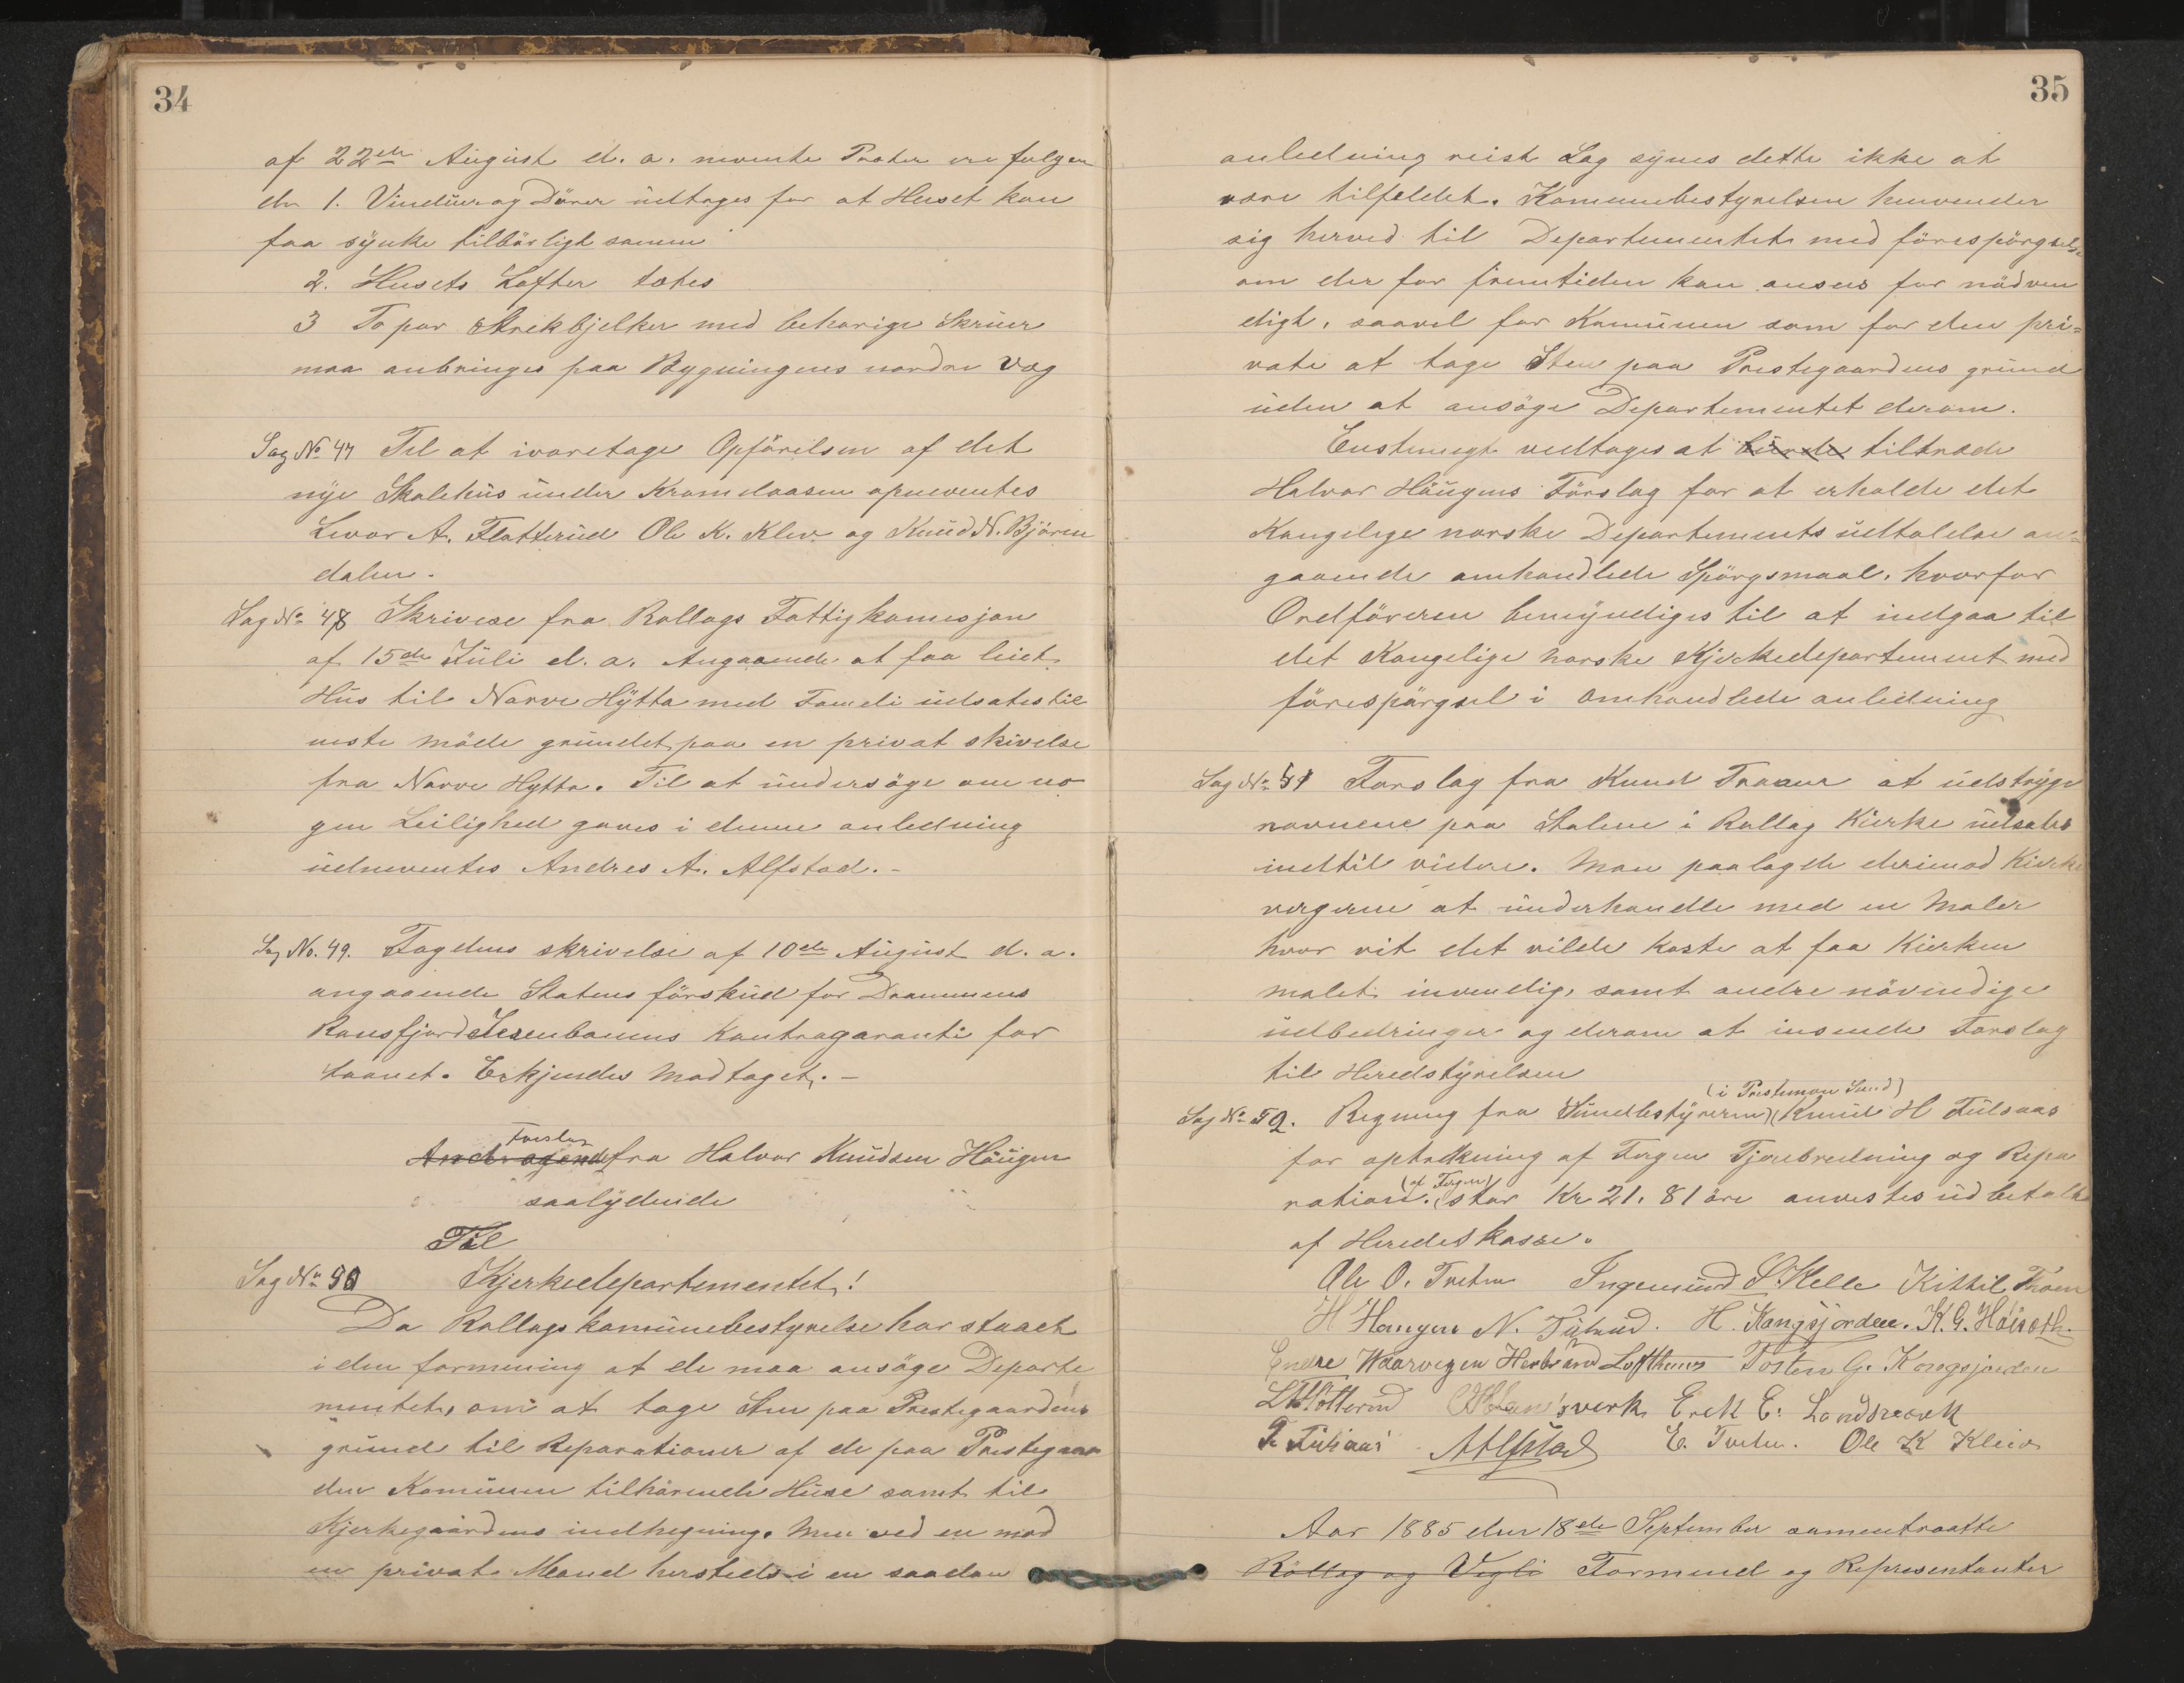 34
af 22de August d. a. nevnte Poster ere følgen
de 1. Vinduer og Dörer udtages for at Huset kan
faa synke tilbörligt samen
2. Husets Lofter tætes
3 To par Strekbjelker med behørige Skruer
maa anbringes paa Bygningens nordre Væg
Sag No 47 Til at ivaretage Opförelsen af det
nye Skolehus under Kromdaasen opnevntes
Levor A. Flatterud Ole K. Klev og Knud N. Björen
dalen.
Sag No 48 Skrivese fra Rollags Fattigkomisjon
af 15de Juli d. a. Angaaende at faa leiet
Hus til Narve Hytta med Fameli udsates til
neste möde grundet paa en privat skivelse
fra Narve Hytta. Til at undersöge om no
gen Leilighed gaves i denne anledning
udnevntes Andres A. Alfstad.-
Sag No. 49. Fogdens skrivelse af 10de August d. a.
angaaende Statens förskud for Drammens
Ransfjord Jesenbanens Kontragaranti for
laanet. Erkjendes Modtaget.-
Forslag
Andragende fra Halvor Knudsen Höugen
saalydende
Til
Sag No 50 Kjerkedepartementet!
Da Rollags komunebestyrelse har staaet
i den formening at de maa ansöge Departe
mentet, om at tage Sten paa Prestegaardens
grund til Reparationer af de paa Prestegaar
den Komunen tilhörende Huse samt til
Kjerkegaardens indhegning. Men ved en mod
en privat Mand hersteds i en saadan
35
anledning reist Sag synes dette ikke at
være tilfeldet. Komunebestyrelsen henvender
sig herved til Departementet med förespörgsels
om der for fremtiden kan anses for nödven
digt, saavel for Komunen som for den pri=
vate at tage Sten paa Prestegaardens grund
uden at ansöge Departementet derom.
Enstemigt vedtages at burde tiltræde
Halvor Höugens Förslag for at erholde det
Kongelige norske Departements udtalelse an=
gaaende omhandlede Spörgsmaal, hvorfor
Ordföreren bemyndiges til at indgaa til
det Kongelige norske Kjerkedepartement med
förespörgsel i omhandlede anledning
Sag No 51 Forslag fra Knud Traaen at udstryge
navnene paa Stolene i Rollag Kierke udsates
indtil videre. Man paalagde derimod Kierke
vergerne at underhandle med en Maler
hvor vit det vilde koste at faa Kierken
malet invendig, samt andre növendige
udbedringer og derom at insende Forslag
til Heredstyrelsen
(i Prestemoen Sund)
Sag No 52. Regning fra Sundbestyreren (Knud H Fulsaas
for optrekning af Fergen Tjærebredning og Repa
(af Fergen)
ration. stor Kr 21. 81 öre anvestes udbetalt
af Heredskasse.
Ole O. Traaen Ingemund S. Kelle Kittil Traaen
H Haugen N. Fulsaas. H. Kongsjorden. K. G. Höiseth.
Endre Waarvegen Herbrand Lofthuus Tosten G. Kongsjorden
L A Flötterud Landsverk Erek E. Landsverk
T. Fulsaas A Alfstad E. Traaen. Ole K Kleiv
Aar 1885 den 18de September samentraatte
Rollag og Vegli Formend og Representanter